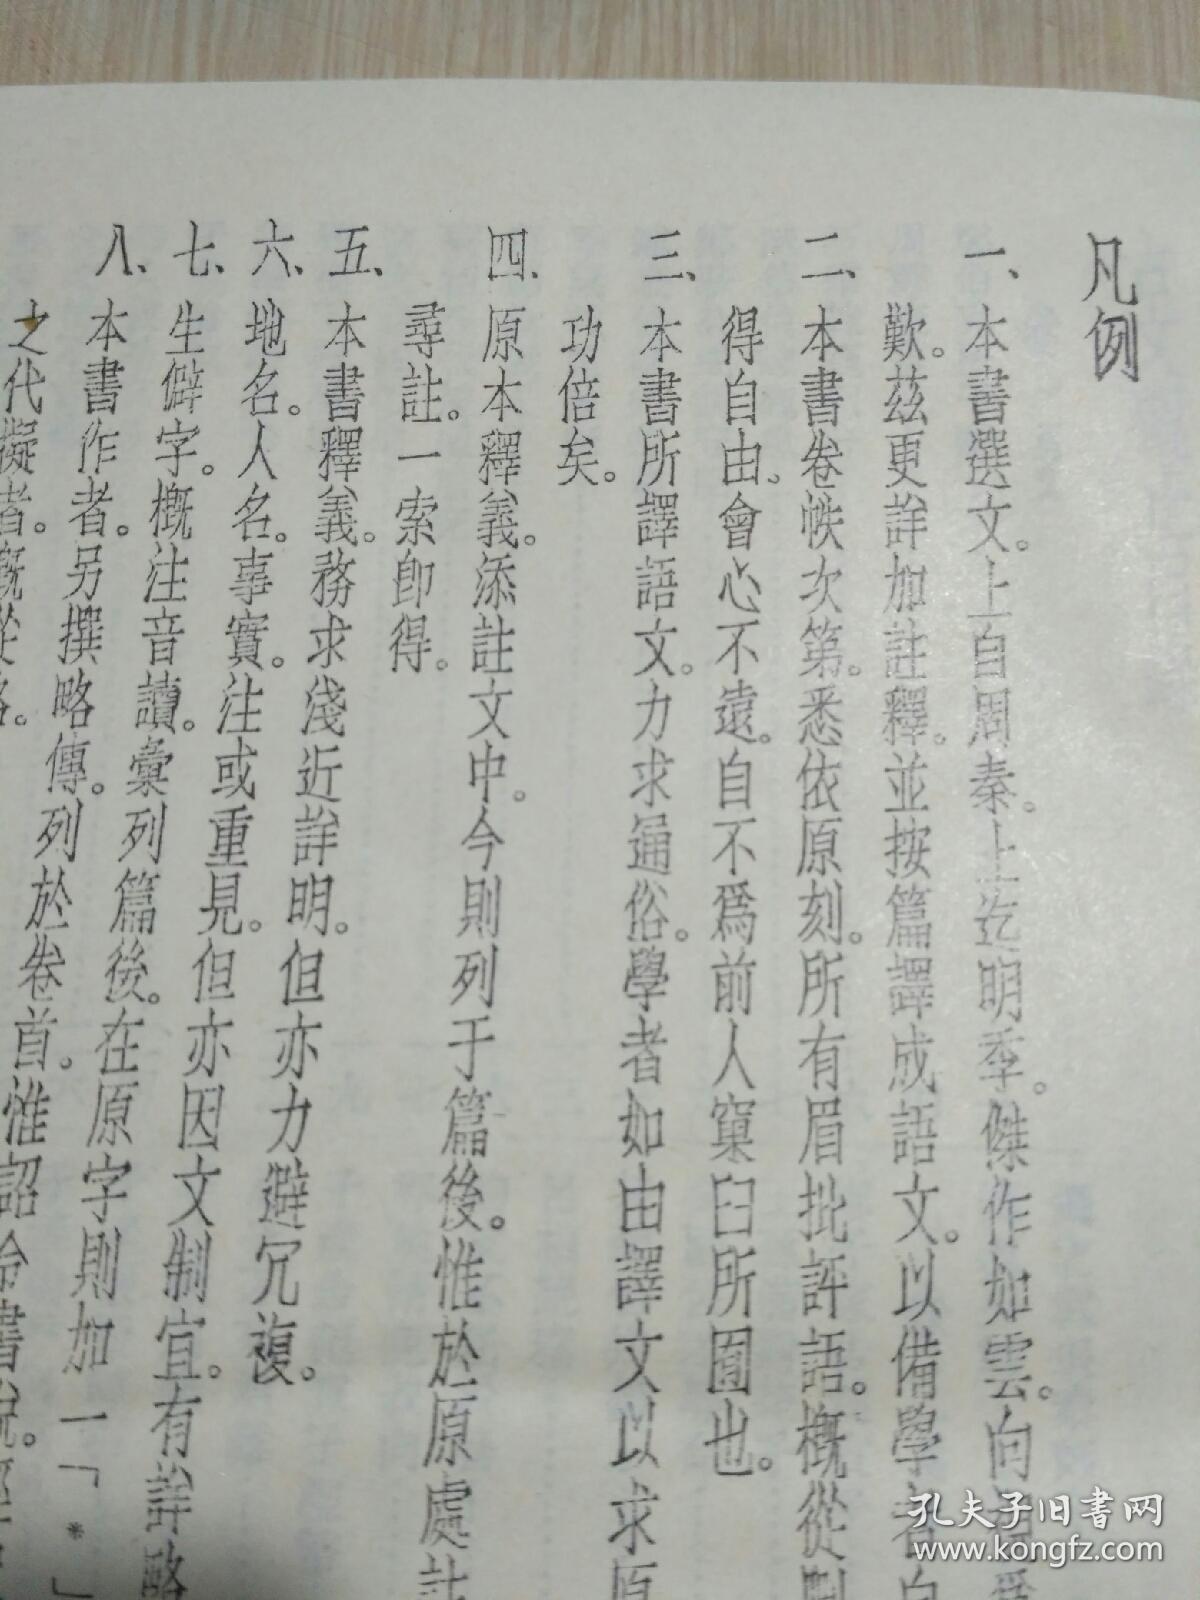 凡例
一、本書選文。上自周秦。上迄明季。傑作如雲。向
歎。茲更詳加註釋。並按篇譯成語文。以備學者
二、本書卷帙次第。悉依原刻。所有眉批評語。概從
得自由。會心不遠。自不爲前人窠臼所囿也。
三、本書所譯語文。力求通俗。學者如由譯文以求原
功倍矣。
四、原本釋義。添註文中。今則列于篇後。惟於原處註
尋註。一索卽得。
五、本書釋義。務求淺近詳明。但亦力避冗複。
六、地名。人名。事實。注或重見。但亦因文制宜。有詳略
七、生僻字。概注音讀。彙列篇後。在原字則加一「*」
八、本書作者。另撰略傳。列於卷首。惟詔令書說。
之代擬者。概從略。
孔夫子旧书网
www.kongfz.com